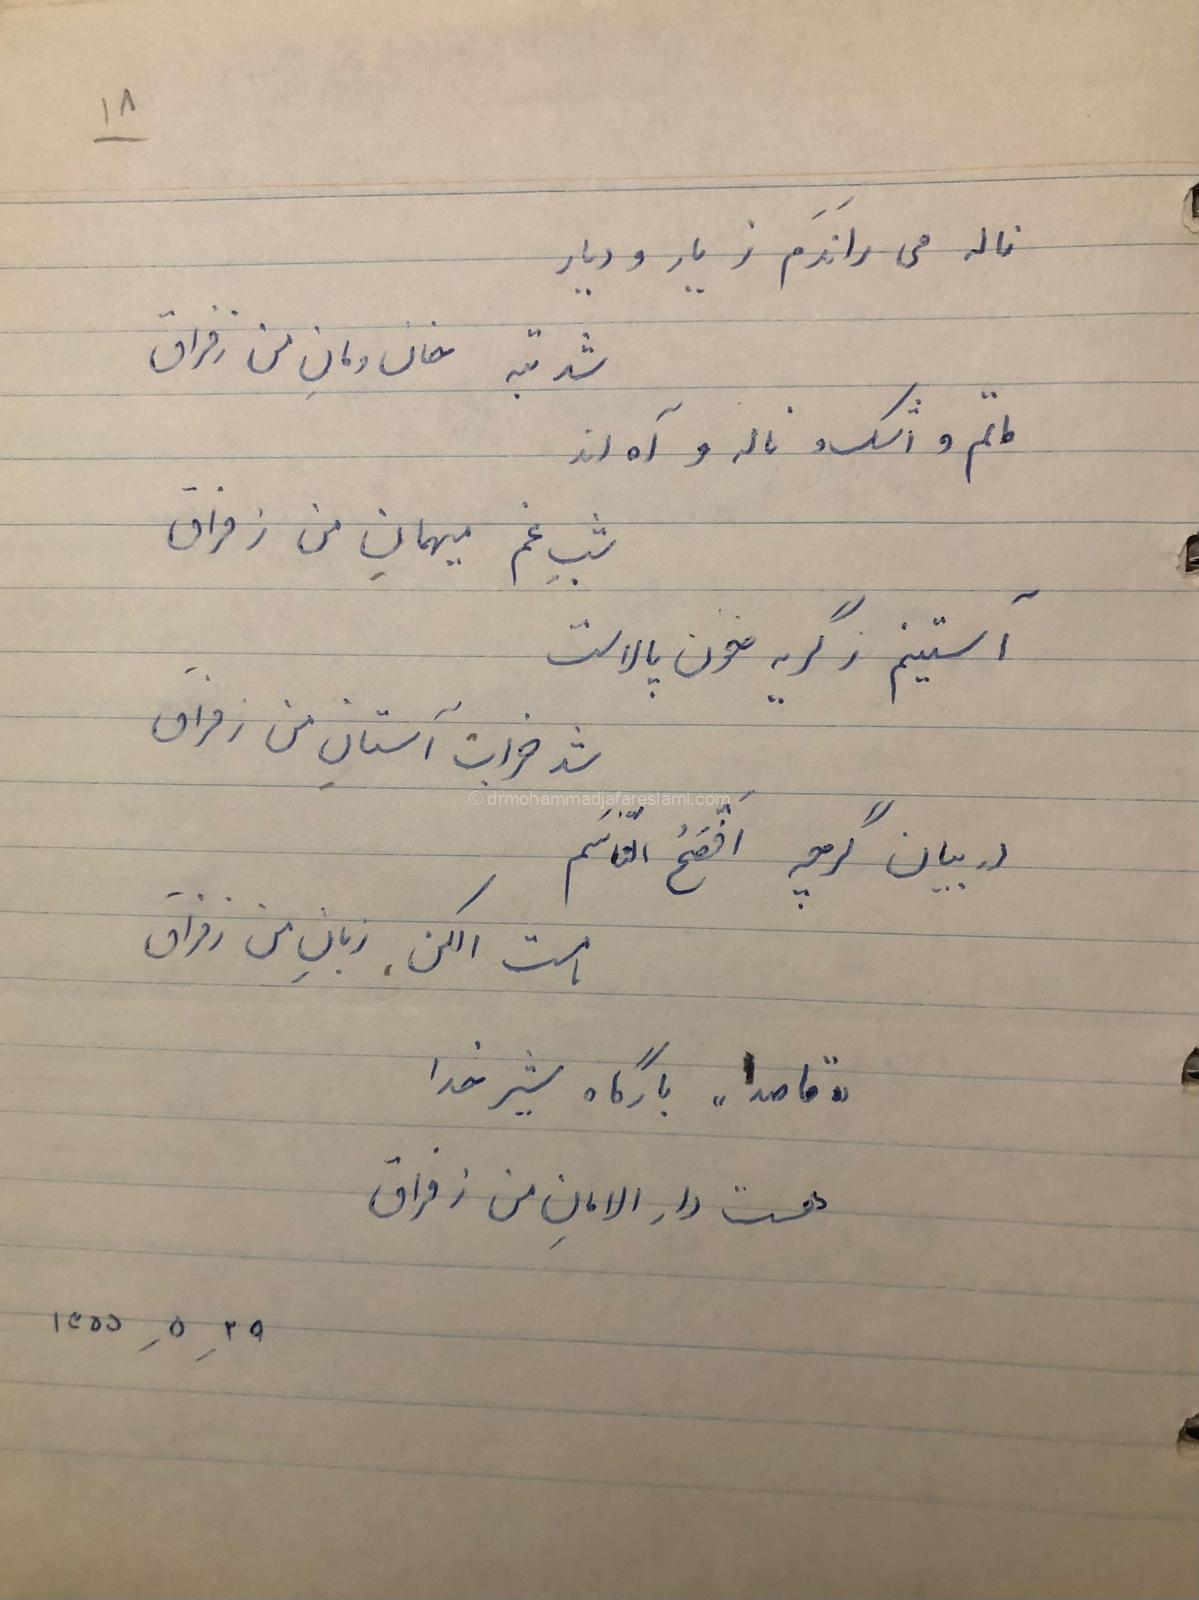 ۱۸
ناله می رانَدَم ز یار و دیار
شد تبه خان ومانِ من زفراق
ماتم و اشک و ناله و آه اند
شبِ غم میهمانِ من ز فراق
آستینم ز گریه خون پالاست
شد خراب آستانِ من ز فراق
© drmohammadjafareslami.com
در بیان گرچه اَفْصَحُ النّاسَم
هست الکن زبانِ من ز فراق
«قاصدا» بارگاه شیر خدا
هست دار الامانِ من ز فراق
۲۹ر۵ر۱۴۰۰